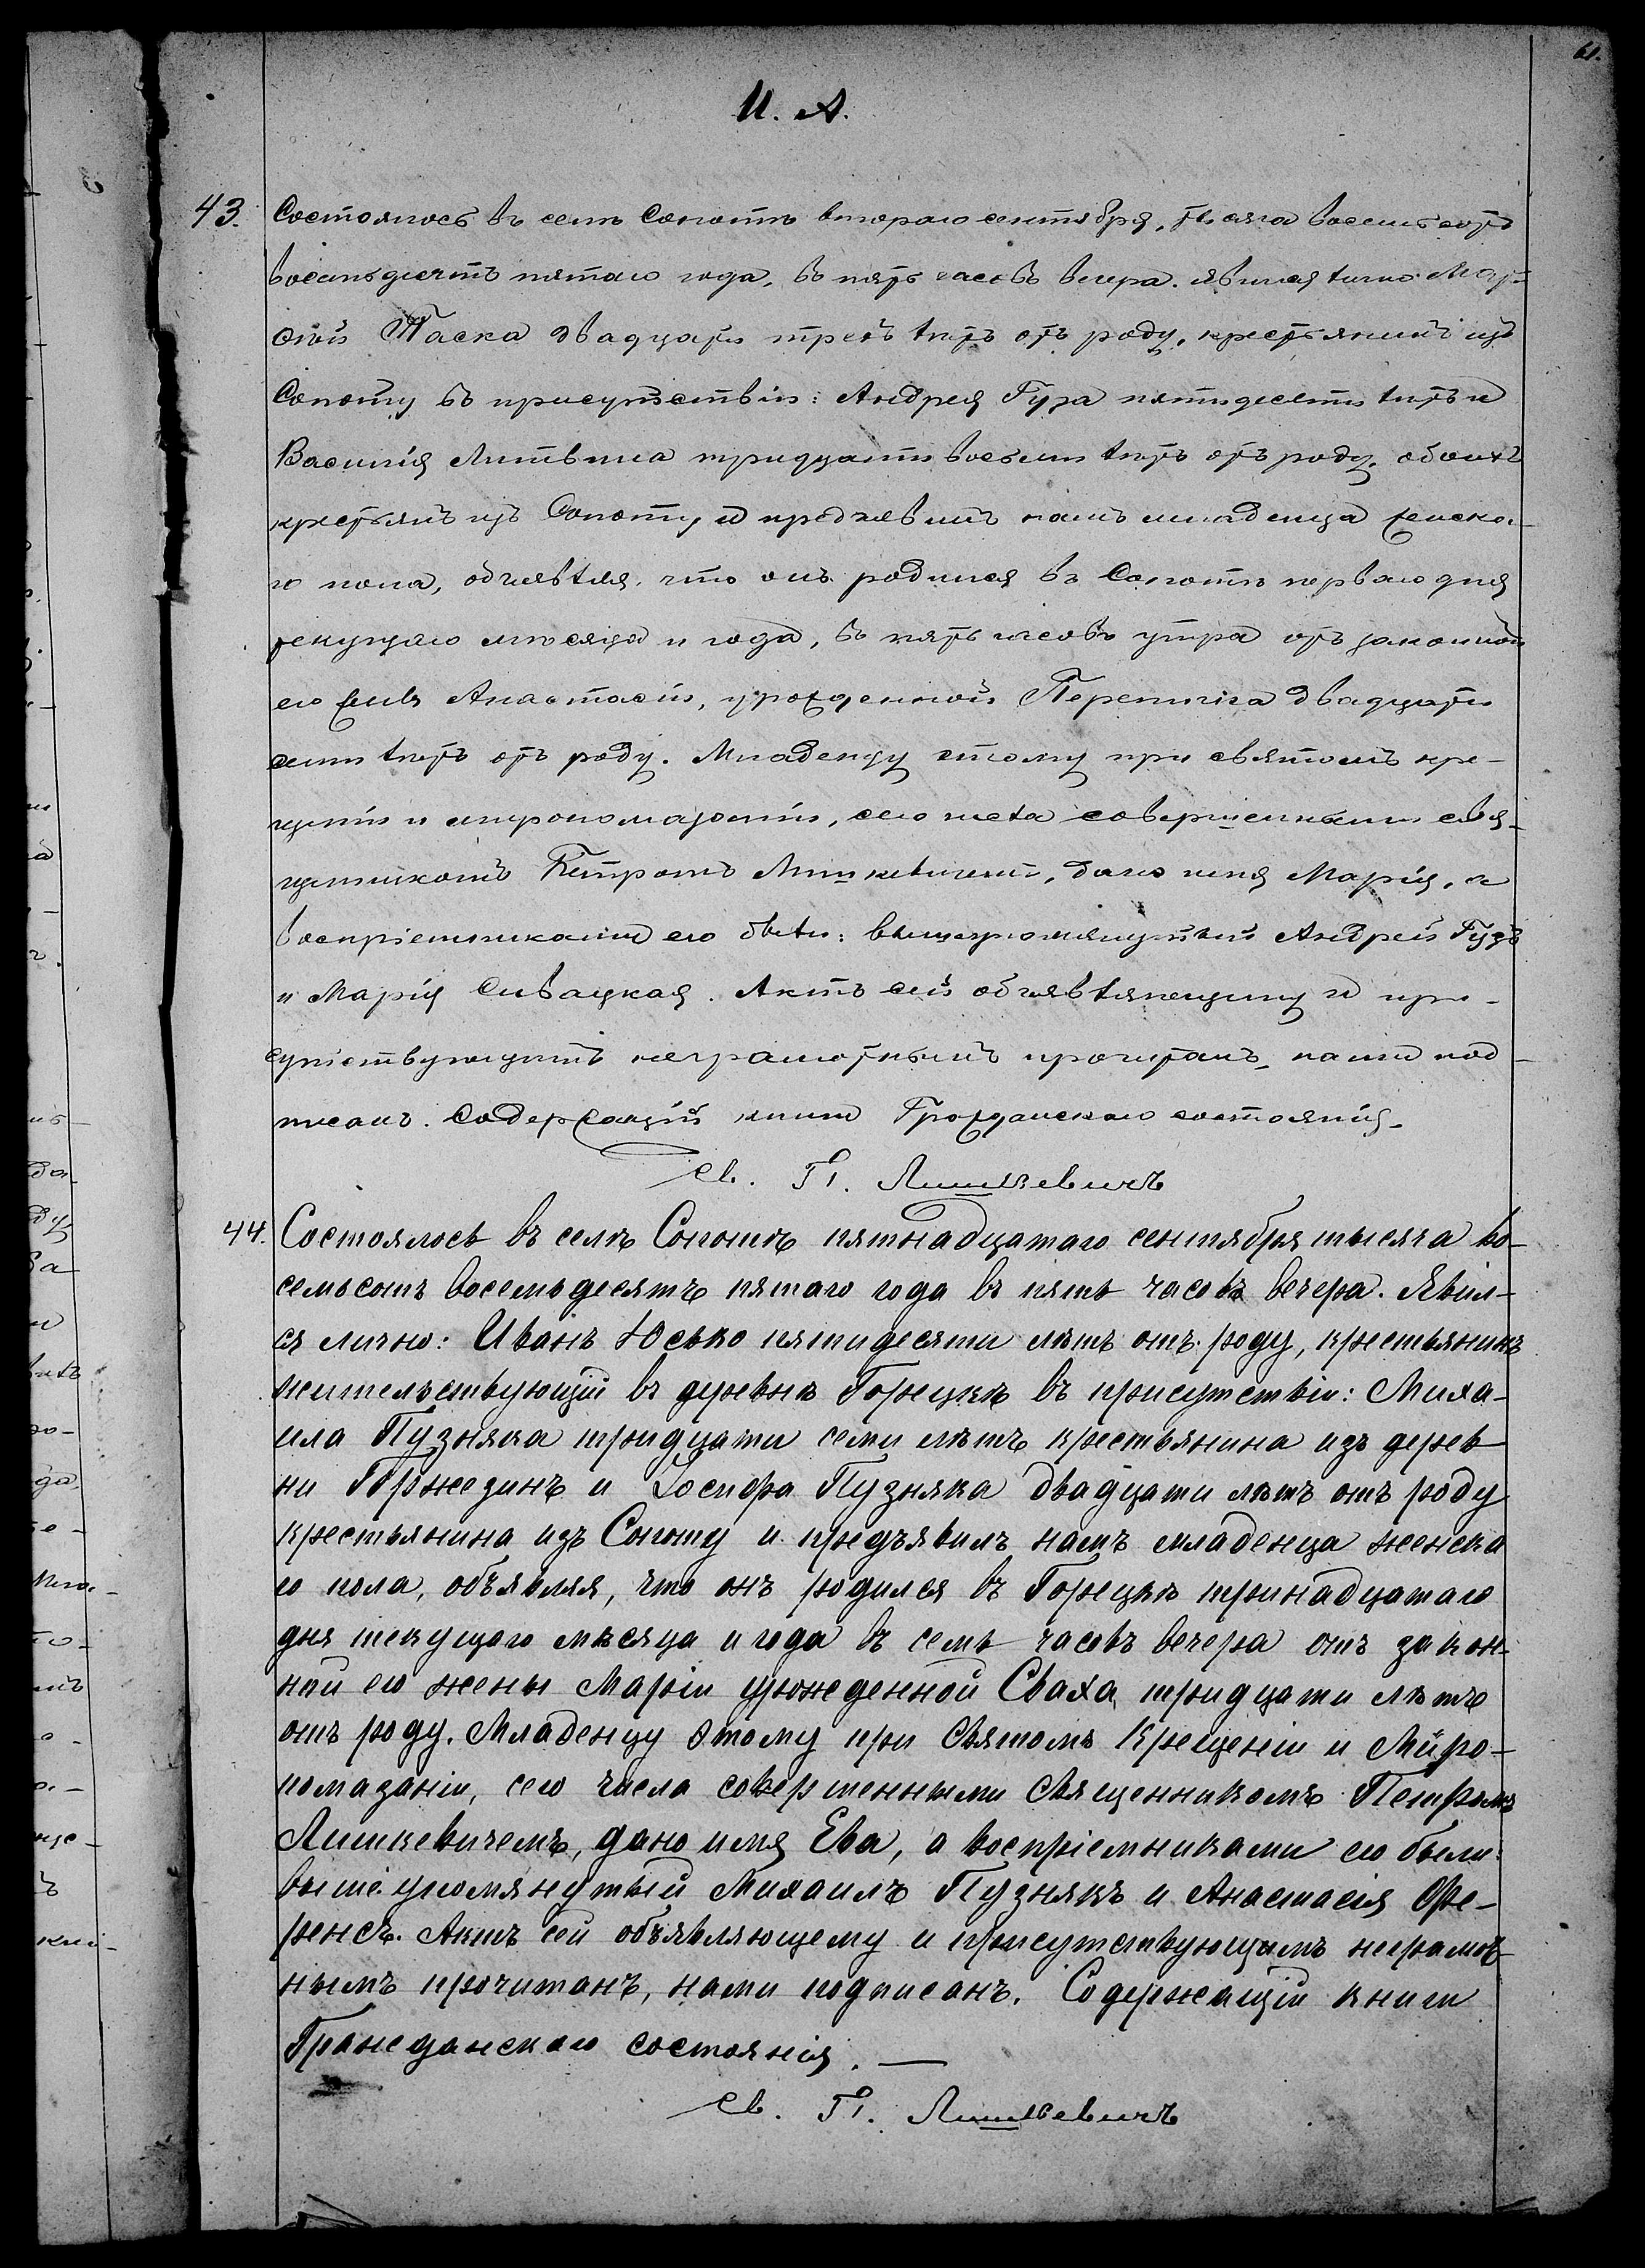 61.
И. А.
43. Состоялось въ селѣ Сопотѣ втораго сентября, тысяча восемьсотъ
восемьдесятъ пятаго года, въ пять часовъ вечера. явился лично
Таска двадцати трехъ лѣтъ отъ роду, крестьянинъ изъ
Сопоту въ присутствіи: Андрея Гуза пятидесяти лѣтъ и
Василія Литвина тридцати восьми лѣтъ отъ роду, обоихъ
крестьянъ изъ Сопоту, и предъявилъ намъ младенца женска-
го пола, объявляя, что онъ родился въ Сопотѣ перваго дня
текущаго мѣсяца и года, въ пять часовъ утра отъ законной
его жены Анастасіи, урожденной двадцати
семи лѣтъ отъ роду. Младенцу этому при святомъ кре-
щеніи и миропомазаніи, сего числа совершенными свя-
щенникомъ Петромъ Лишкевичемъ, дано имя Марія, а
воспріемниками его были: вышеупомянутый Андрей Гузъ
и Марія Сивацкая. Актъ сей объявляющему и при-
сутствующимъ неграмотнымъ прочитанъ, нами под-
писанъ. Содержащій книги Гражданскаго состоянія.
Св. П. Лишкевичъ
44. Состоялось въ селѣ Сопотѣ пятнадцатаго сентября тысяча во-
семьсотъ восемьдесятъ пятаго года въ пять часовъ вечера. Явил-
ся лично: Иванъ Юсько пятидесяти лѣтъ отъ роду, крестьянинъ
жительствующій въ деревнѣ Горецкѣ въ присутствіи: Миха-
ила Пузняка тридцати семи лѣтъ крестьянина изъ дерев
ни Горжезинъ и Іосифа Пузняка двадцати лѣтъ отъ роду
крестьянина изъ Сопоту и предъявилъ намъ младенца женска
го пола, объявляя, что онъ родился въ Горецкѣ тринадцатаго
дня текущаго мѣсяца и года въ семь часовъ вечера отъ закон-
ной его жены Маріи урожденной Сваха, тридцати лѣтъ
отъ роду. Младенцу этому при Святомъ Крещеніи и Мѵро-
помазаніи, сего числа совершенными Священникомъ Петромъ
Лишкевичемъ, дано имя Ева, а воспріемниками его были:
вышеупомянутый Михаилъ Пузнякъ и Анастасія Фе-
ренсъ. Актъ сей объявляющему и присутствующимъ неграмот
нымъ прочитанъ, нами подписанъ. Содержащій книги
Гражданскаго состоянія. —
Св. П. Лишкевичъ